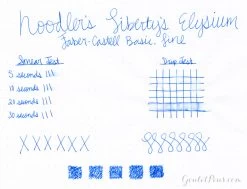 Noodler's Liberty's Elysium
Faber-Castell Basic, fine
Smear Test
Drip Test
5 seconds
10 seconds
20 seconds
30 seconds
XXXXXX
GouletPens.com